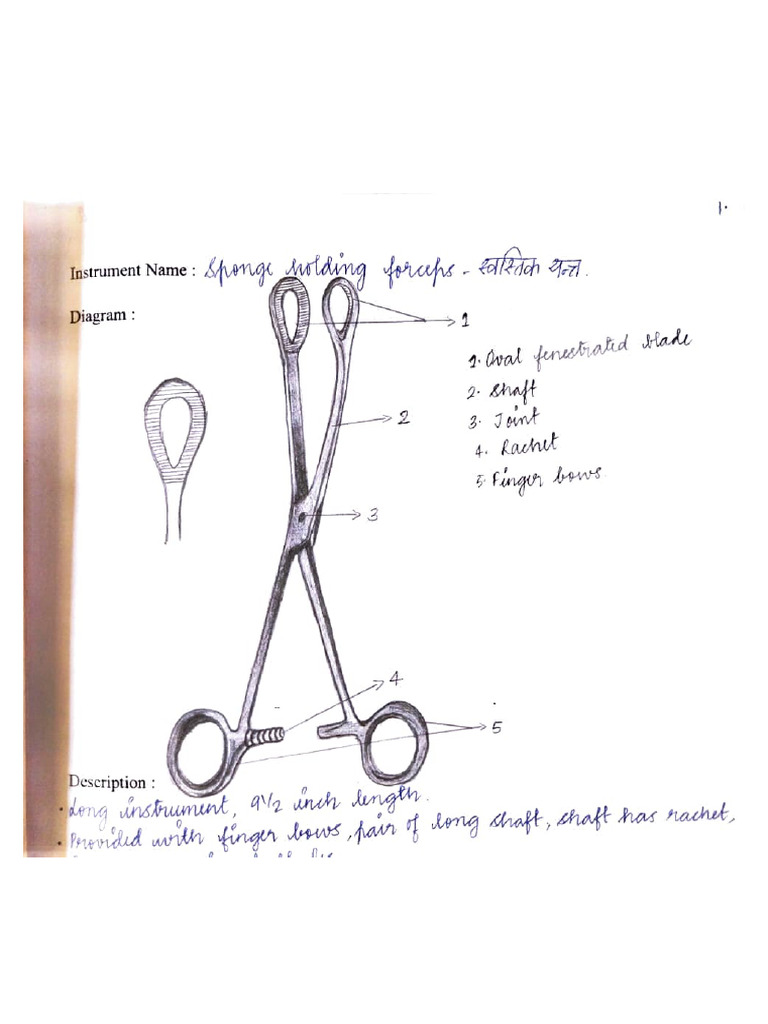 1.
Instrument Name : Sponge holding forceps - स्वस्तिक यन्त्र.
Diagram :
1
1. Oval fenestrated blade
2. Shaft
2
3. Joint
4. Rachet
5. Finger bows
3
4
5
Description :
• Long instrument, 9 1/2 inch length.
• Provided with finger bows, pair of long shaft, shaft has rachet,